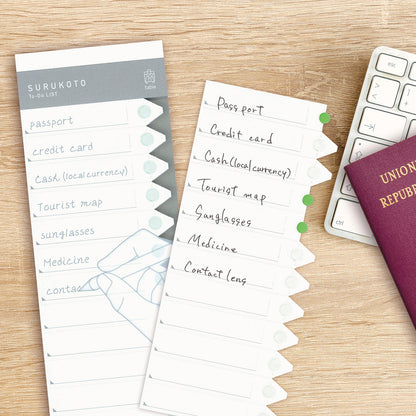 SURUKOTO
To-Do LIST
table
passport
credit card
Cash (local currency)
Tourist map
sunglasses
Medicine
contac
Passport
Credit card
Cash (local currency)
Tourist map
Sunglasses
Medicine
Contact lens
esc
ctrl
UNION
REPUBL